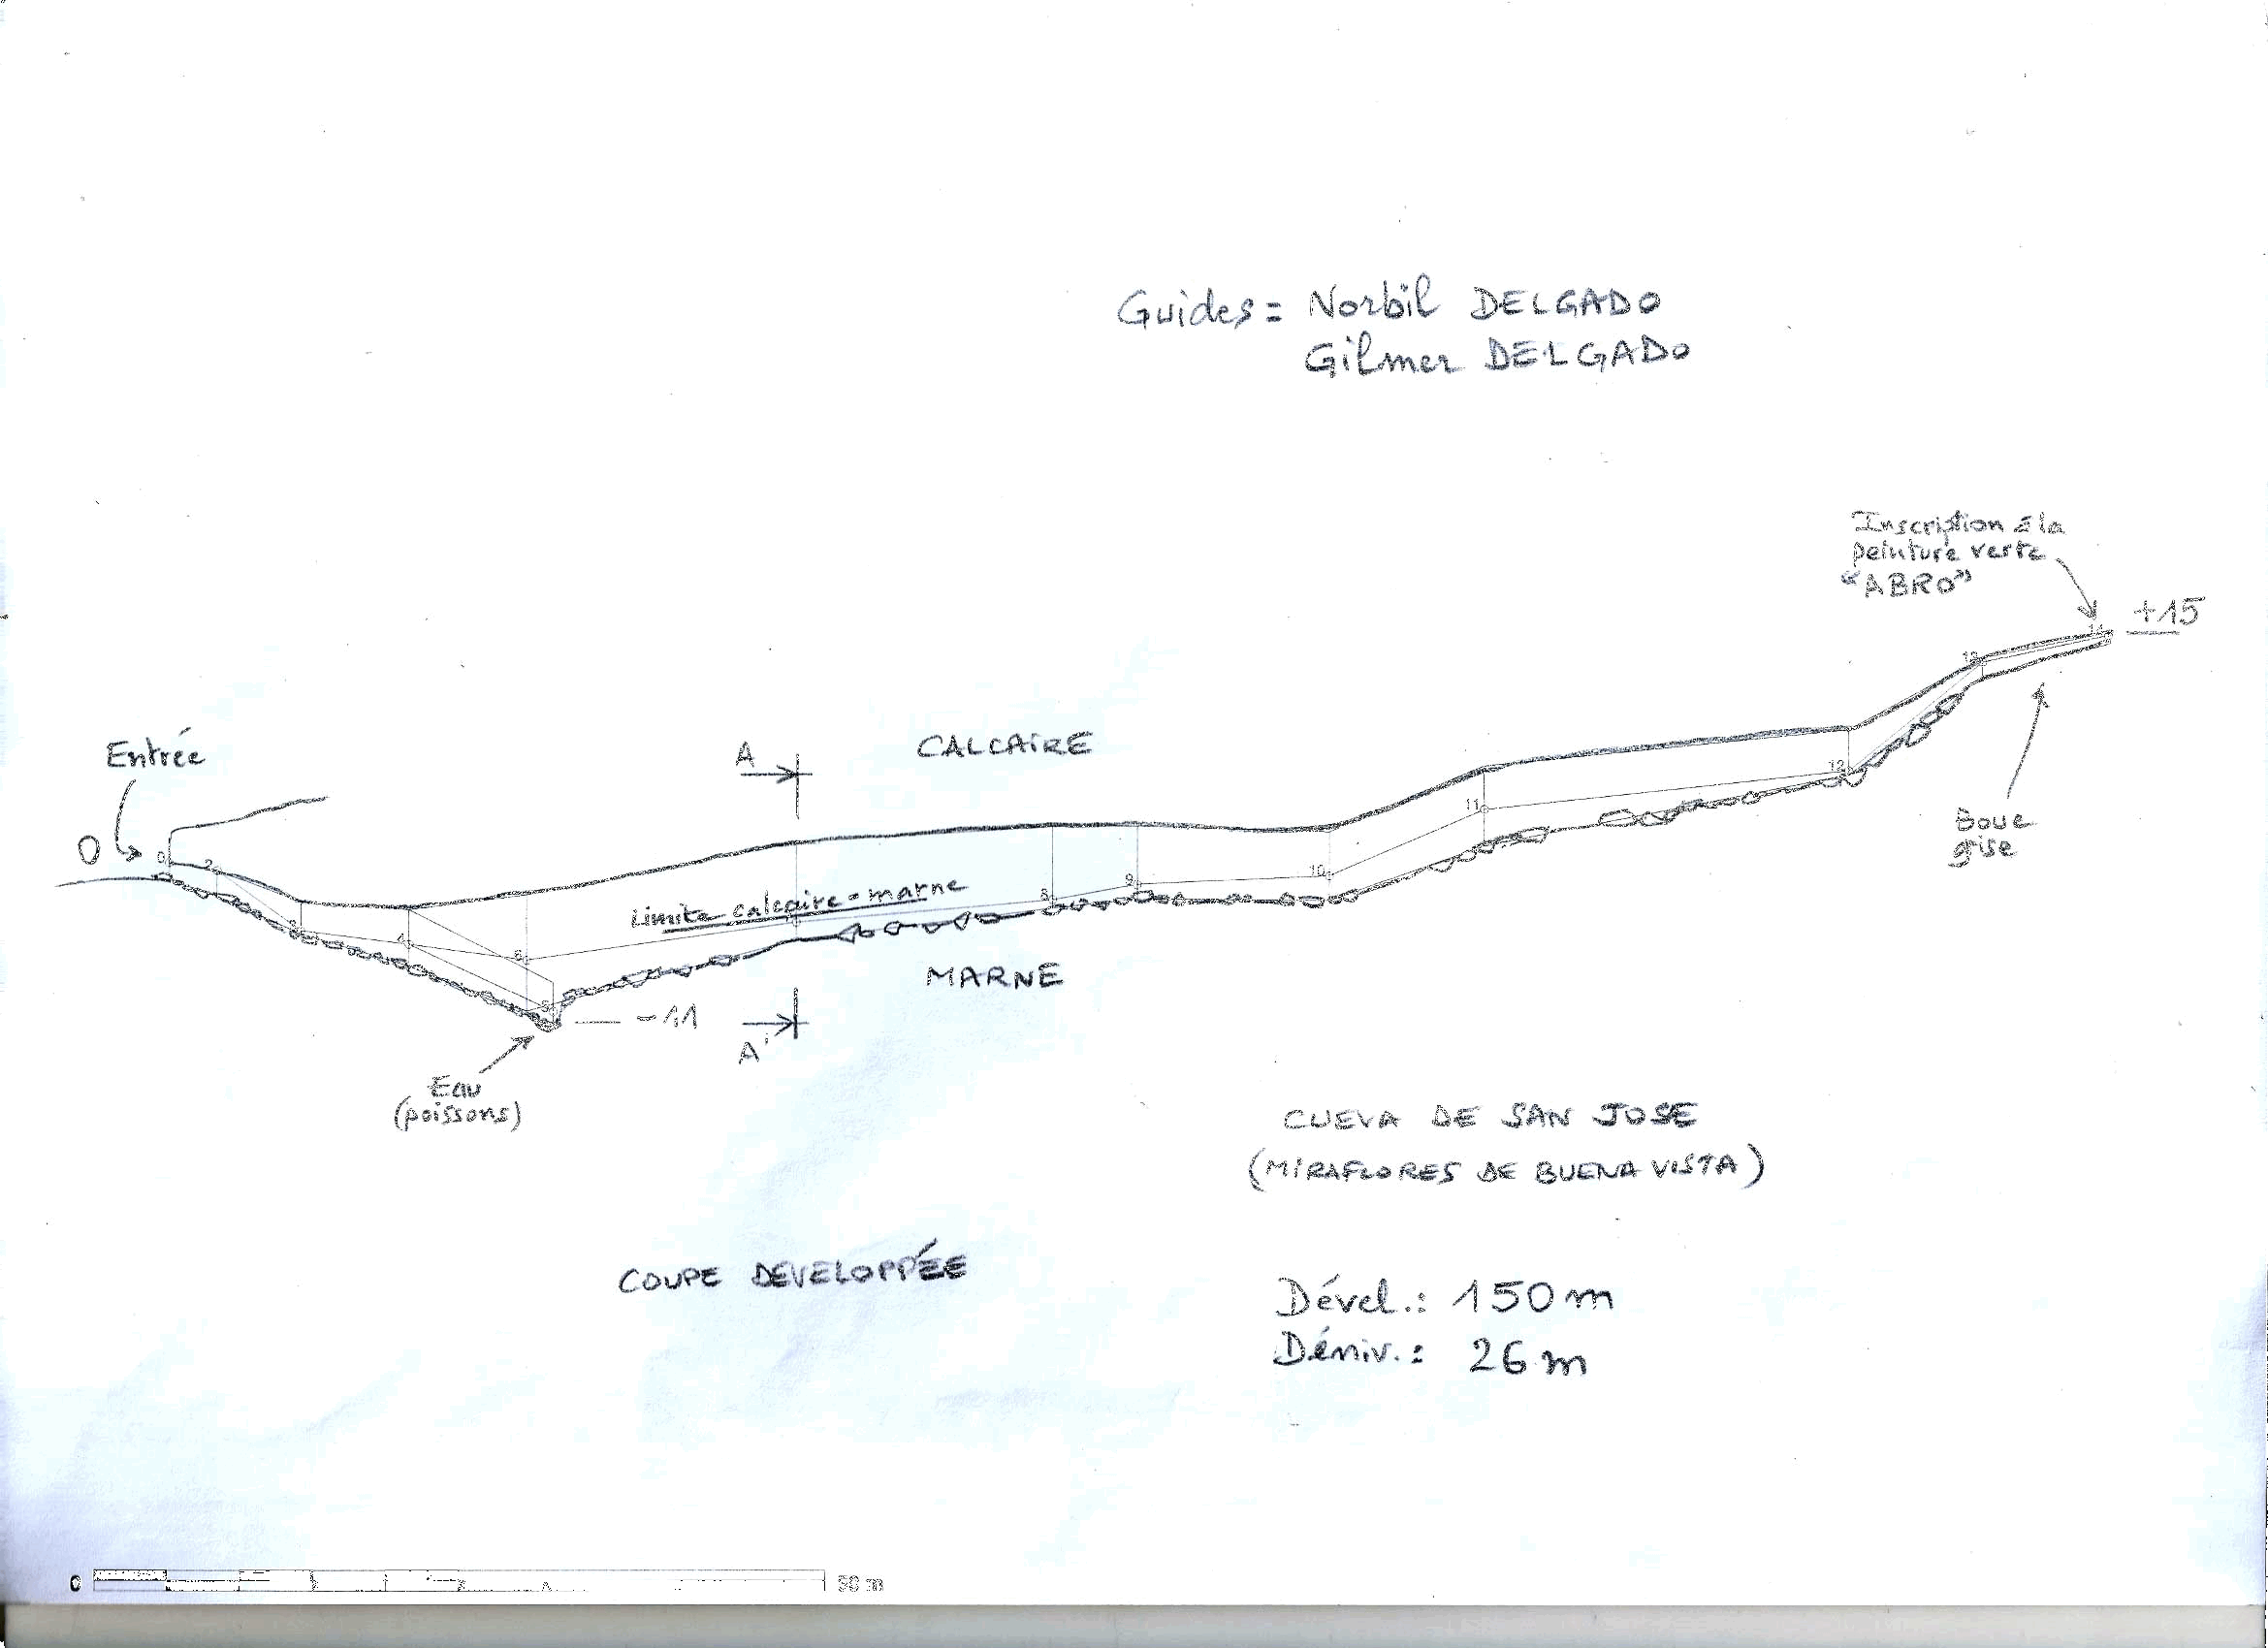 Guides = Norbil DELGADO
Gilmer DELGADO
Inscription à la
peinture verte
"ABRO"
+15
14
13
Entrée
A
CALCAIRE
0
0
2
12
11
Boue
grise
Limite calcaire-marne
8
9
10
3
4
6
7
5
MARNE
-11
A'
Eau
(poissons)
CUEVA DE SAN JOSE
(MIRAFLORES DE BUENA VISTA)
COUPE DEVELOPPÉE
Dével.: 150 m
Déniv.: 26 m
0 50 m